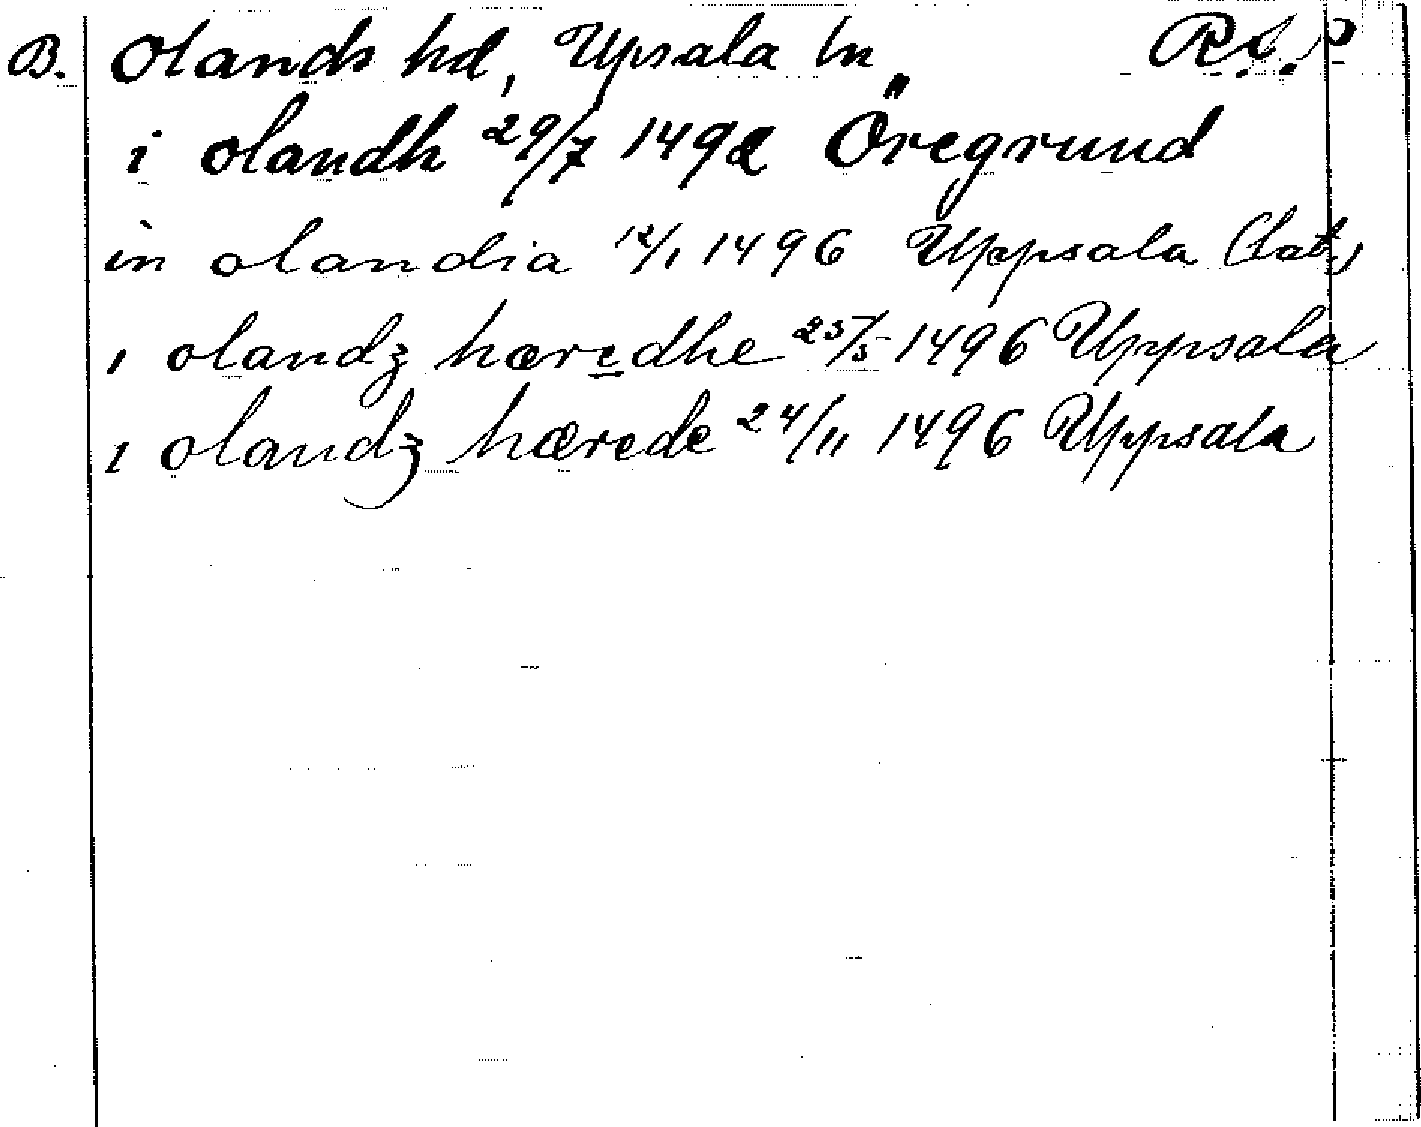 B. Olands hd, Upsala ln R.A.P
i olandh 29/7 1492 Öregrund
in olandia 12/1 1496 Uppsala (lat.)
i olandz hæredhe 25/5 1496 Uppsala
i olandz hærede 24/11 1496 Uppsala